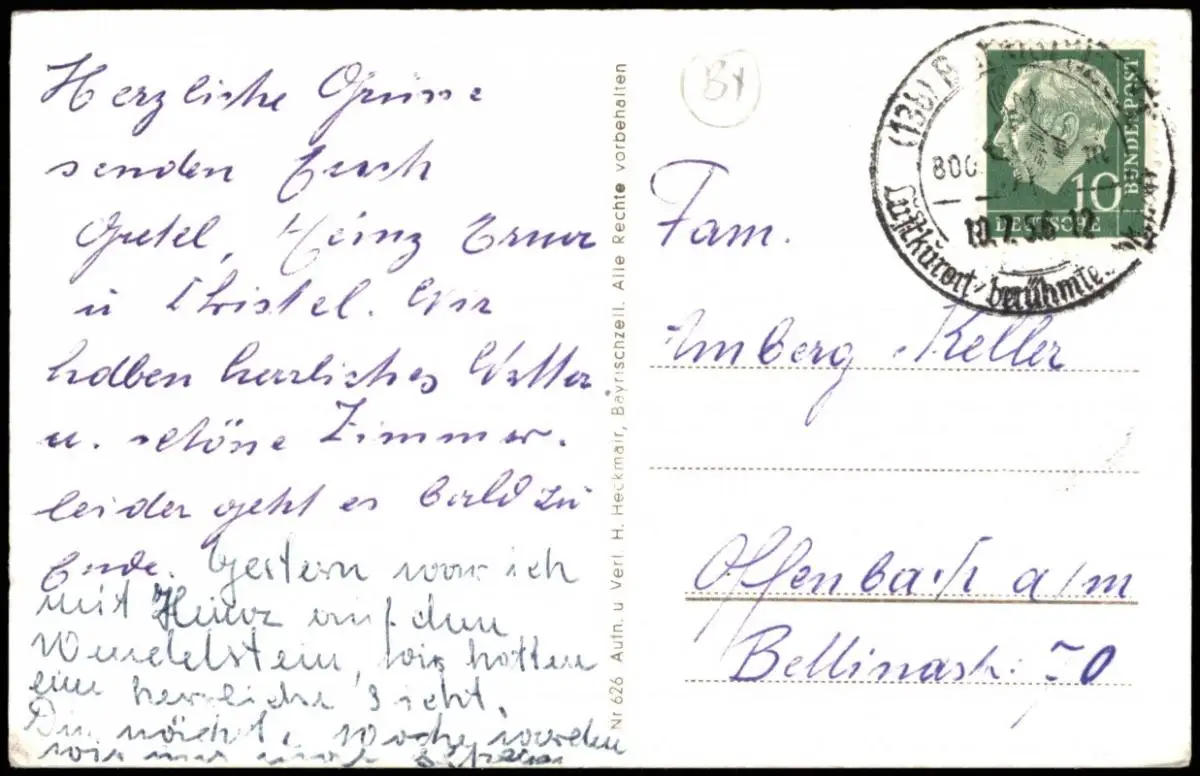 Herzliche Grüsse
senden Euch
Gretel, Heinz Erna
u Christel. Wir
haben herrliches Wetter
u. schöne Zimmer.
leider geht es bald zu
Ende. Gestern war ich
mit Heinz auf dem
Wendelstein, wir hatten
eine herrliche Sicht.
Die nächst. Woche werden
wir uns
Nr 626 Aufn. u. Verl. H. Heckmair, Bayrischzell. Alle Rechte vorbehalten
BY
(13b)
800
10.7.56-12
Luftkurort berühmte
BUNDESPOST
10
DEUTSCHE
Fam.
Amberg Keller
Offenbach a/m
Bellinastr. 70